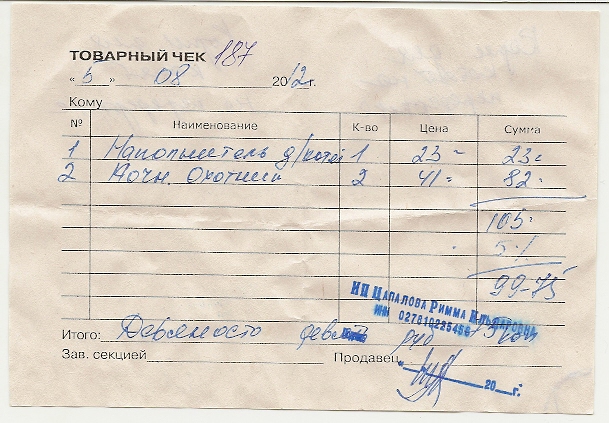 ТОВАРНЫЙ ЧЕК 187
« 5 » 08 2012г.
Кому
№ Наименование К-во Цена Сумма
1 Наполнитель д/котят 1 23= 23=
2 Ночн. Охотник 2 41= 82=
105=
5%
99-75
ИП ЦАПАЛОВА РИММА ИЛЬДАРОВНА
ИНН
Итого: Девяносто девять руб 75 коп
Зав. секцией Продавец
« 20 г.